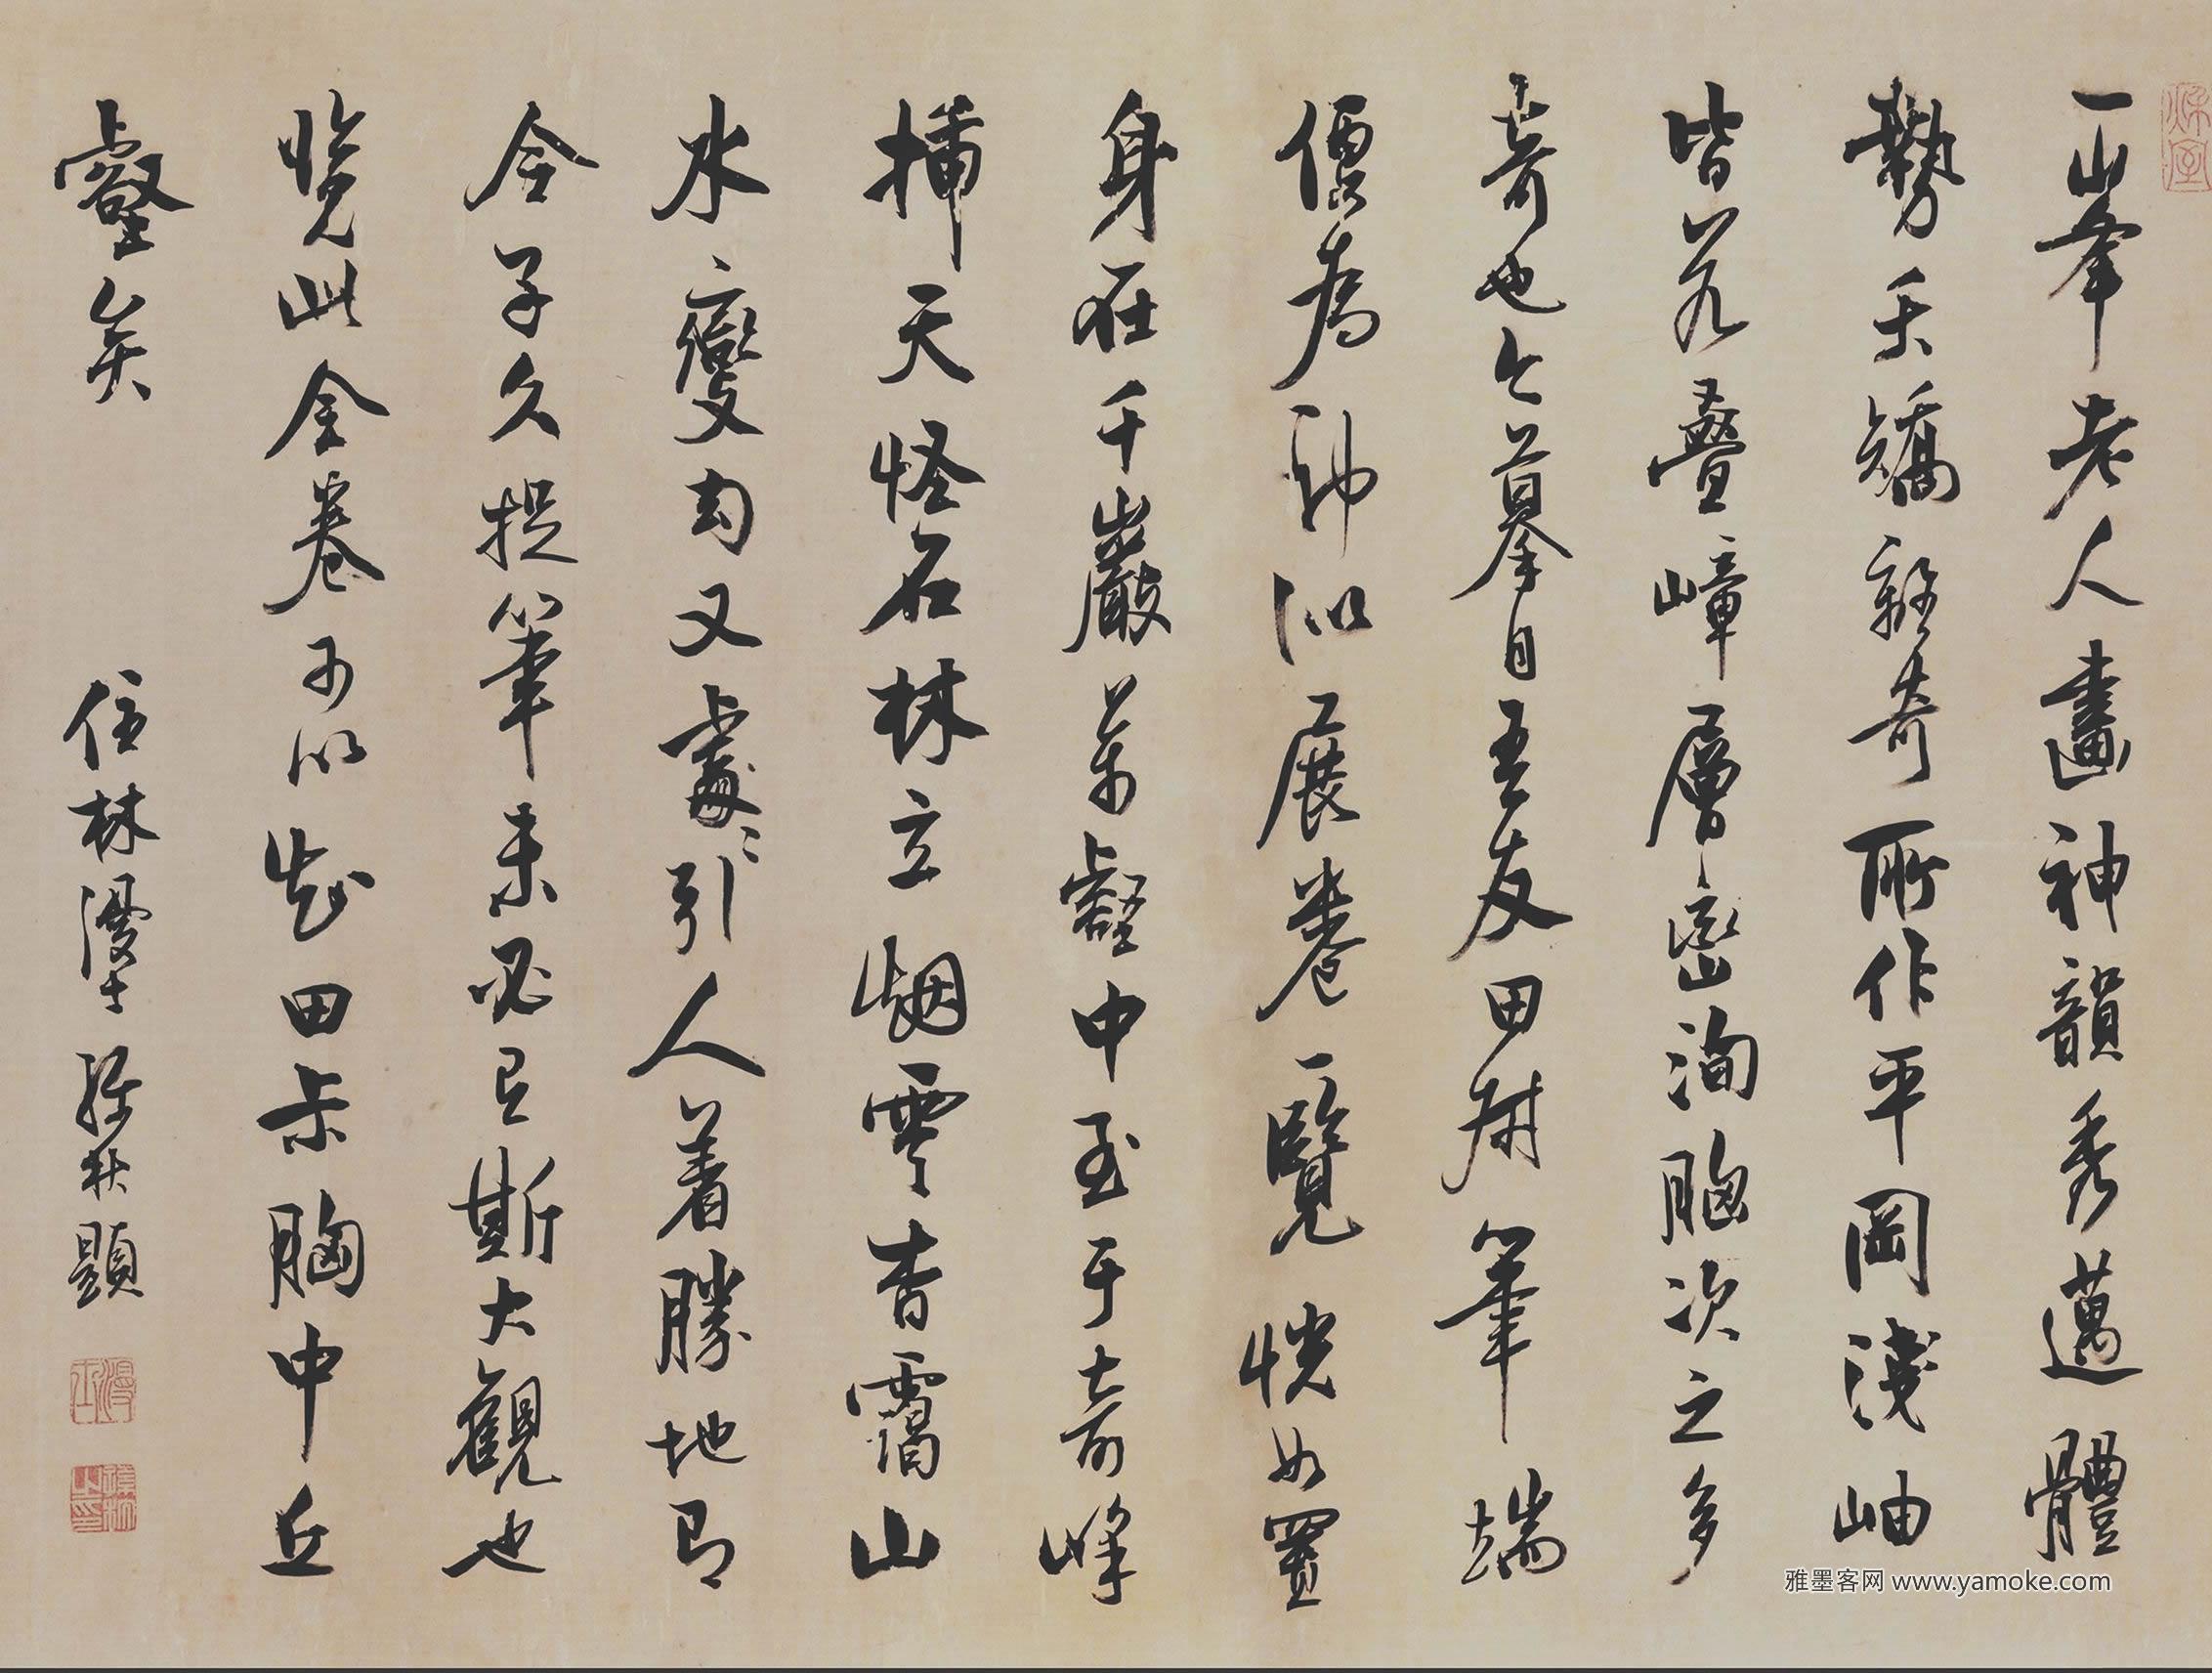 一峯老人畫神韻秀邁體
勢夭矯離奇所作平岡淺岫
皆若疊嶂層巒洵胸次之多
奇也今摹自吾友田尗筆端
便為神似展卷一覽恍如置
身在千巖萬壑中至于奇峰
插天怪石林立烟雲杳靄山
水變幻又處〻引人着勝地即
令子久捉筆未必有斯大觀也
覽此全卷可以知田尗胸中丘
壑矣
住林漫士 題
雅墨客网 www.yamoke.com